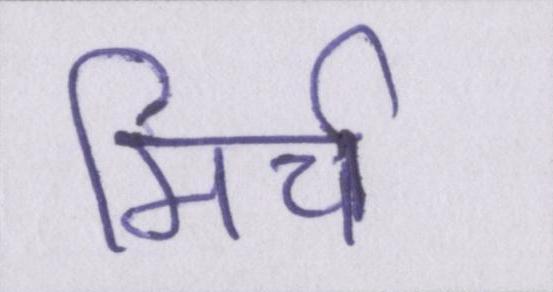 मिर्च